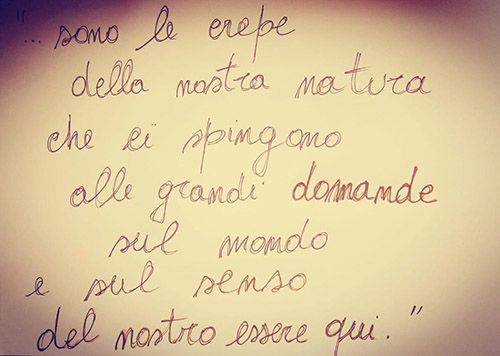 "... sono le crepe
della nostra natura
che ci spingono
alle grandi domande
sul mondo
e sul senso
del nostro essere qui."